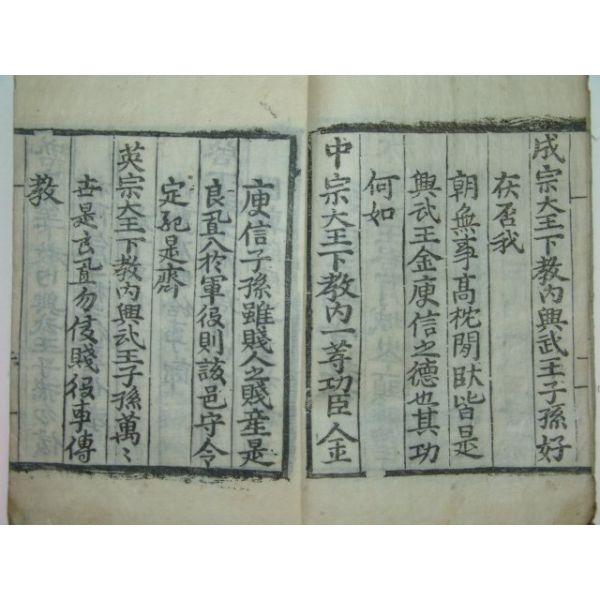 成宗大王下教内興武王子孫好
在否我
朝無事高枕閒臥皆是
興武王金庾信之德也其功
何如
中宗大王下教内一等功臣金
庾信子孫雖賤人之賤産是
良置入於軍役則該邑守令
定配是齋
英宗大王下教内興武王子孫萬〻
世是良置勿侵賤役事傳
教